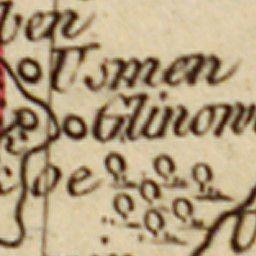 ben
Usmen
Glinow
oe